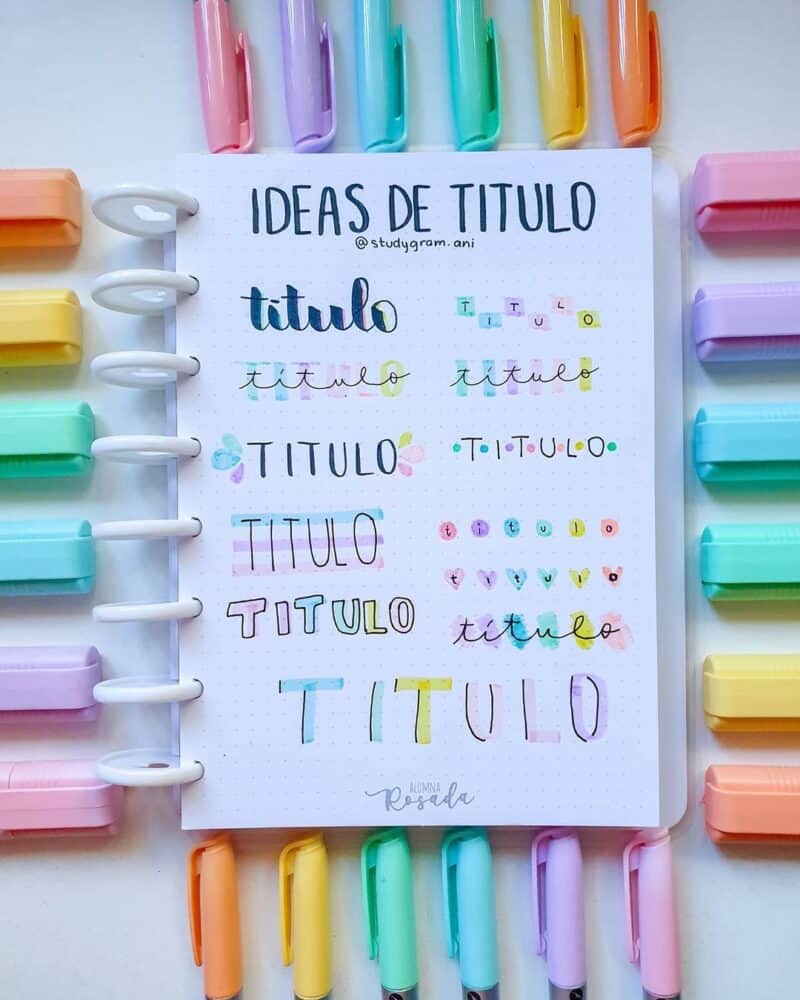 IDEAS DE TITULO
@studygram.ani
título
TITULO
título
título
TITULO
TITULO
TITULO
titulo
titulo
TITULO
título
TITULO
ALUMNA
Rosada